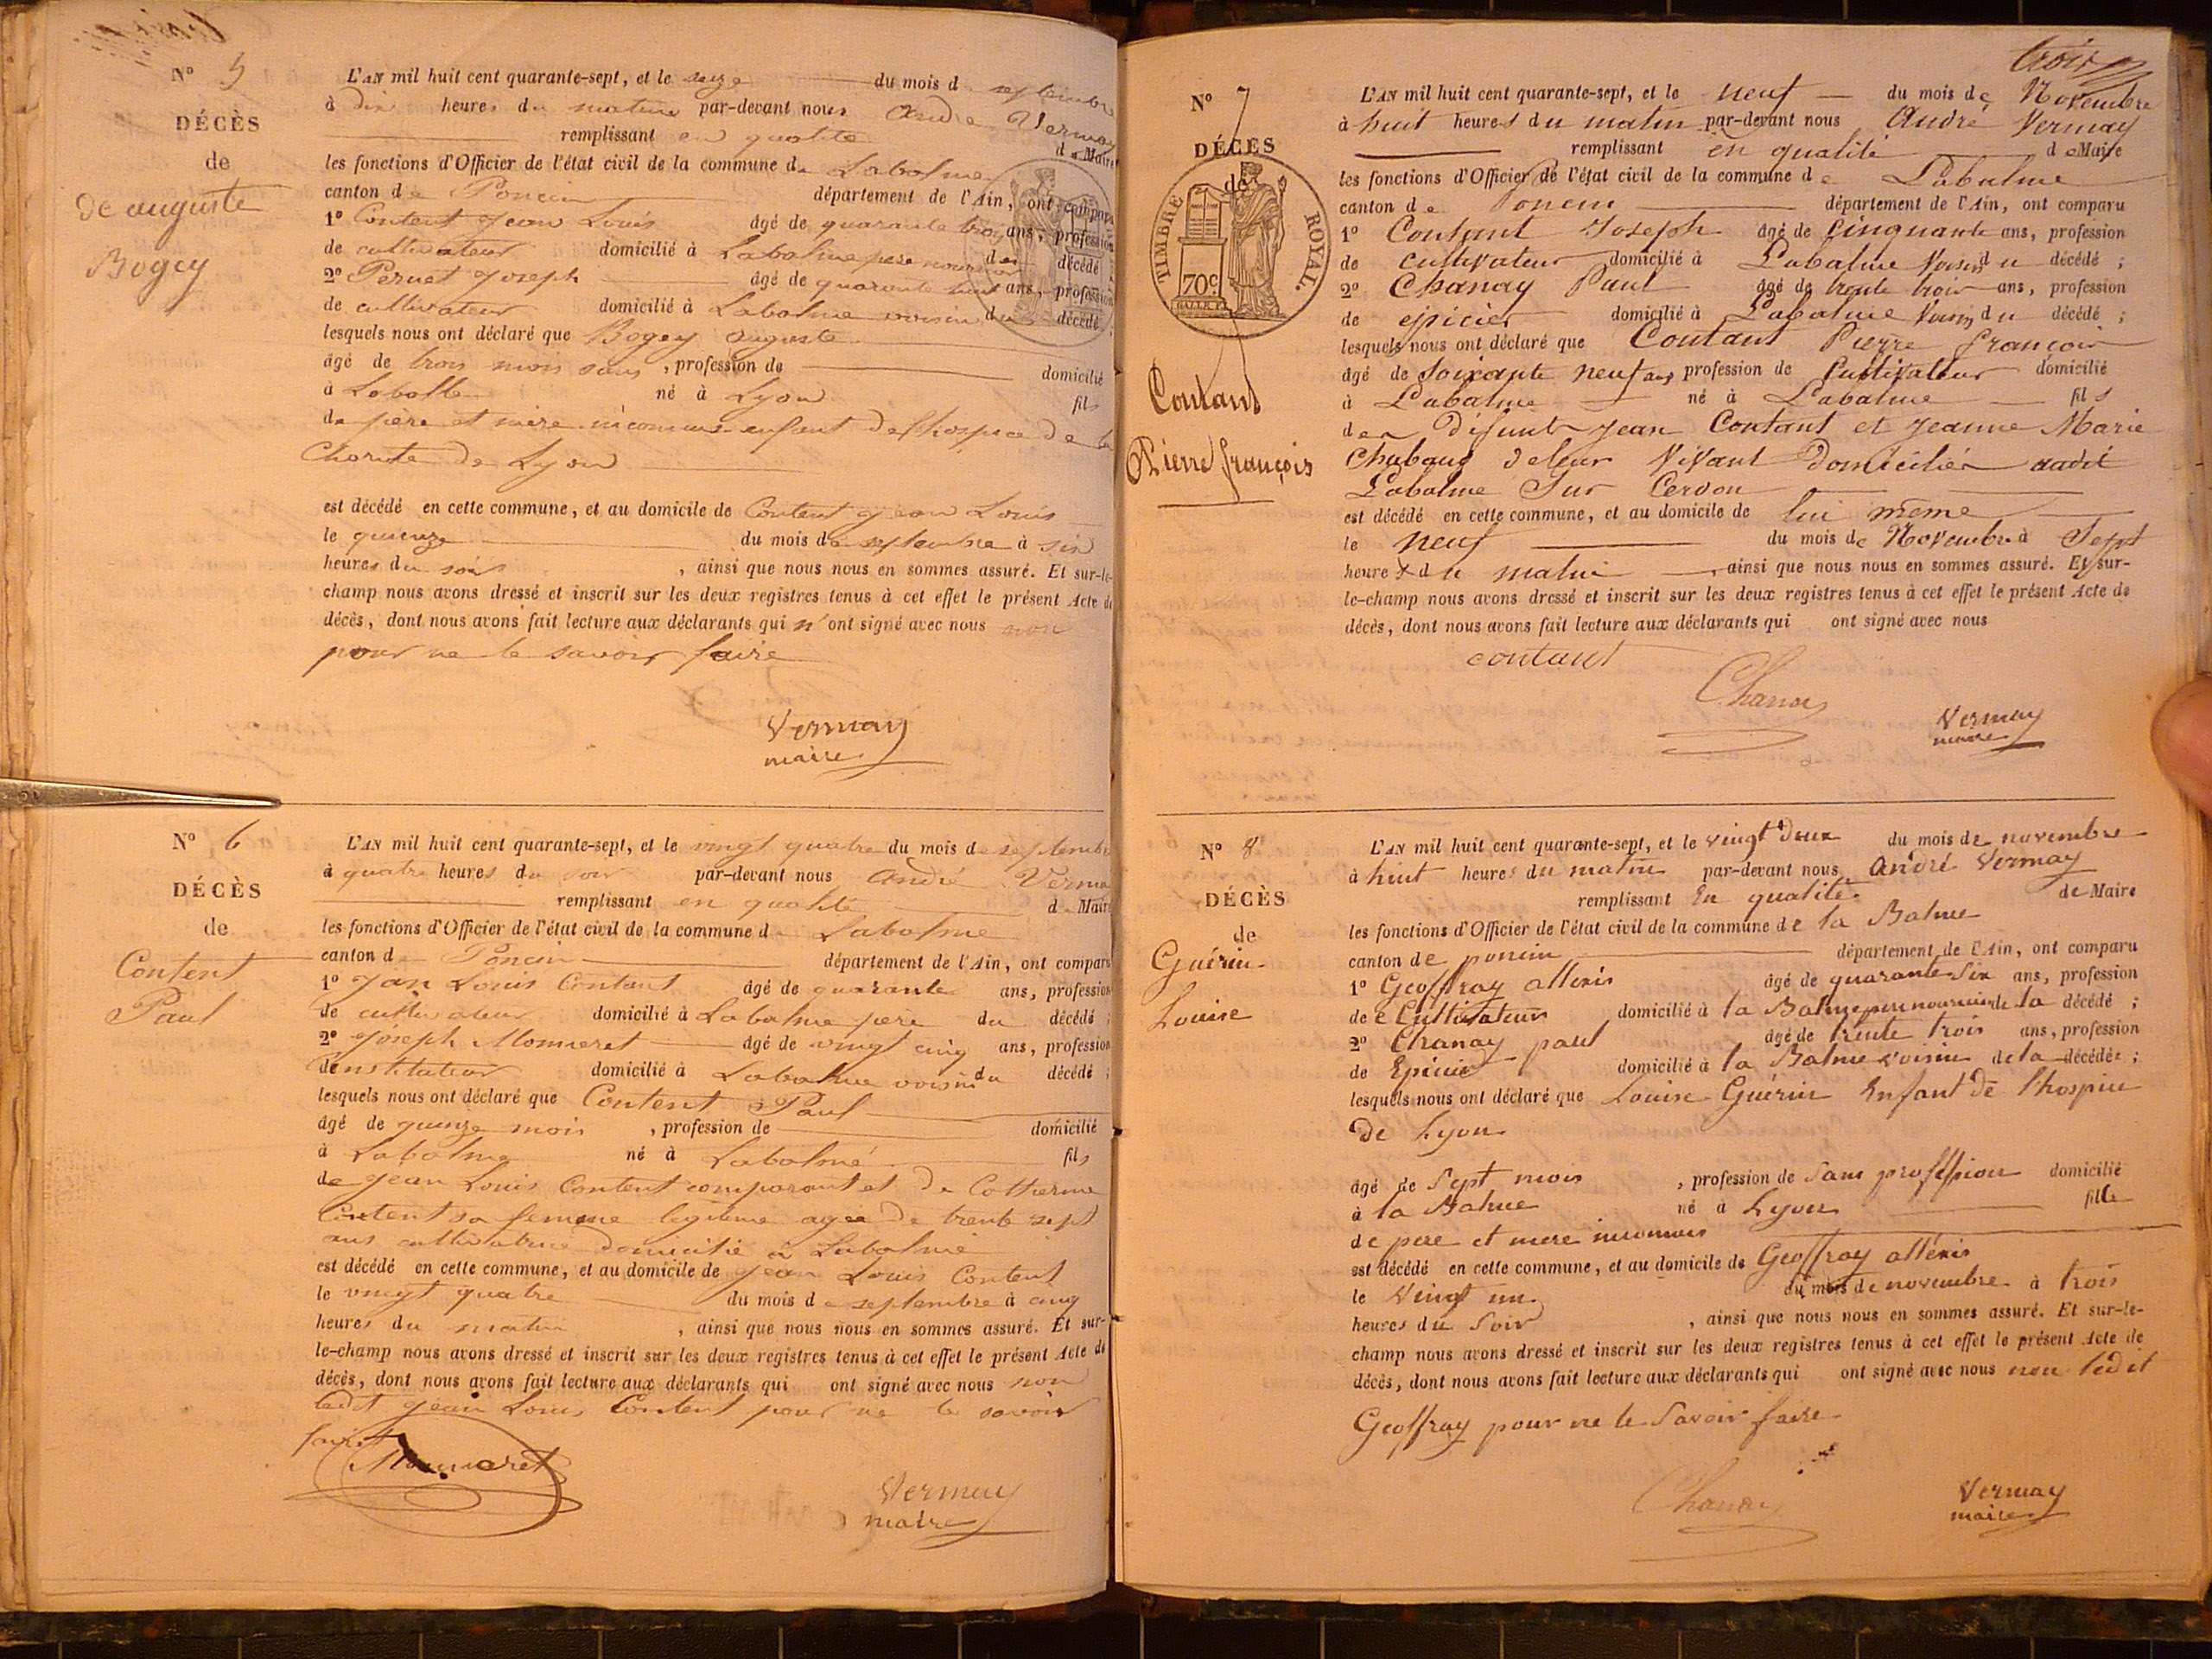 Nº 5
DÉCÈS
de
De auguste
Bogey
L'AN mil huit cent quarante-sept, et le seize du mois de septembre
à dix heures du matin par-devant nous André Vermay
remplissant en qualité de Maire
les fonctions d'Officier de l'état civil de la commune de Labalme
canton de Poncin département de l'Ain, ont comparu
1º Content Jean Louis âgé de quarante trois ans, profession
de cultivateur domicilié à Labalme pere nourricier du décédé
2º Pernet Joseph âgé de quarante huit ans, profession
de cultivateur domicilié à Labalme voisin du décédé,
lesquels nous ont déclaré que Bogey Auguste
âgé de trois mois sans, profession de domicilié
à Labalme né à Lyon fils
de père et mère inconnus enfant de l'hospice de la
Charité de Lyon
est décédé en cette commune, et au domicile de Content Jean Louis
le quinze du mois de septembre à six
heures du soir, ainsi que nous nous en sommes assuré. Et sur-le-
champ nous avons dressé et inscrit sur les deux registres tenus à cet effet le présent Acte de
décès, dont nous avons fait lecture aux déclarants qui n'ont signé avec nous non
pour ne le savoir faire
Vermay
maire
Nº 6
DÉCÈS
de
Content
Paul
L'AN mil huit cent quarante-sept, et le vingt quatre du mois de septembre
à quatre heures du soir par-devant nous André Vermay
remplissant en qualité de Maire
les fonctions d'Officier de l'état civil de la commune de Labalme
canton de Poncin département de l'Ain, ont comparu
1º Jean Louis Content âgé de quarante ans, profession
de cultivateur domicilié à Labalme pere du décédé ;
2º Joseph Monneret âgé de vingt cinq ans, profession
d'institateur domicilié à Labalme voisin du décédé ;
lesquels nous ont déclaré que Content Paul
âgé de quinze mois, profession de domicilié
à Labalme né à Labalme fils
de Jean Louis Content comparant et de Catherine
Content sa femme légitime agée de trente sept
ans cultivatrice domicilié à Labalme
est décédé en cette commune, et au domicile de Jean Louis Content
le vingt quatre du mois de septembre à cinq
heures du matin, ainsi que nous nous en sommes assuré. Et sur-
le-champ nous avons dressé et inscrit sur les deux registres tenus à cet effet le présent Acte de
décès, dont nous avons fait lecture aux déclarants qui ont signé avec nous non
ledit Jean Louis Content pour ne le savoir
faire
Monneret
Vermay
maire
trois
Nº 7
DÉCÈS
de
TIMBRE ROYAL.
70 c.
Contant
Pierre françois
L'AN mil huit cent quarante-sept, et le neuf du mois de Novembre
à huit heures du matin par-devant nous André Vermay
remplissant en qualité de Maire
les fonctions d'Officier de l'état civil de la commune de Labalme
canton de Poncin département de l'Ain, ont comparu
1º Contant Joseph âgé de Cinquante ans, profession
de cultivateur domicilié à Labalme Voisin du décédé ;
2º Chanay Paul âgé de trente trois ans, profession
de épicier domicilié à Labalme Voisin du décédé ;
lesquels nous ont déclaré que Contant Pierre françois
âgé de Soixante neuf ans profession de Cultivateur domicilié
à Labalme né à Labalme fils
des défunts Jean Contant et Jeanne Marie
Chabaud de leur Vivant Domiciliés audit
Labalme Sur Cerdon
est décédé en cette commune, et au domicile de lui même
le neuf du mois de Novembre à Sept
heures du matin, ainsi que nous nous en sommes assuré. Et sur-
le-champ nous avons dressé et inscrit sur les deux registres tenus à cet effet le présent Acte de
décès, dont nous avons fait lecture aux déclarants qui ont signé avec nous
contant
Chanay
Vermay
maire
Nº 8
DÉCÈS
de
Guérin
Louise
L'AN mil huit cent quarante-sept, et le vingt deux du mois de novembre
à huit heures du matin par-devant nous André Vermay
remplissant En qualité de Maire
les fonctions d'Officier de l'état civil de la commune de la Balme
canton de poncin département de l'Ain, ont comparu
1º Geoffray allexis âgé de quarante Six ans, profession
de Cultivateur domicilié à la Balme pere nourricier de la décédé ;
2º Chanay paul âgé de trente trois ans, profession
de Epicier domicilié à la Balme voisin de la décédée ;
lesquels nous ont déclaré que Louise Guérin Enfant de l'hospice
de Lyon
âgé de Sept mois, profession de Sans proffession domicilié
à la Balme né à Lyon fille
de pere et mere inconnus
est décédé en cette commune, et au domicile de Geoffray alléxis
le Vingt un du mois de novembre à trois
heures du Soir, ainsi que nous nous en sommes assuré. Et sur-le-
champ nous avons dressé et inscrit sur les deux registres tenus à cet effet le présent Acte de
décès, dont nous avons fait lecture aux déclarants qui ont signé avec nous non ledit
Geoffray pour ne le Savoir faire
Chanay
Vermay
maire